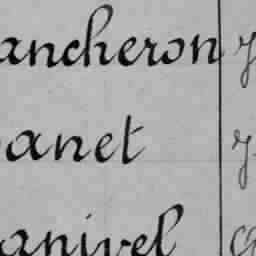 ancheron
anet
anivel